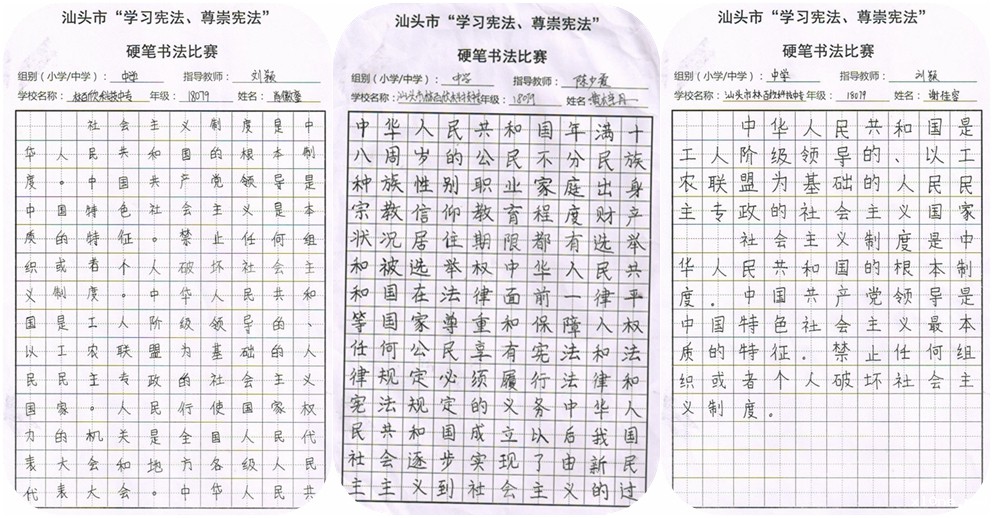 汕头市“学习宪法、尊崇宪法”
硬笔书法比赛
组别（小学/中学）：中学 指导教师：刘颖
学校名称：林百欣科技中专 年级：18079 姓名：
社会主义制度是中
华人民共和国的根本制
度。中国共产党领导是
中国特色社会主义是本
质的特征。禁止任何组
织或者个人破坏社会主
义制度。中华人民共和
国是工人阶级领导的、
以工农联盟为基础的人
民民主专政的社会主义
国家。人民行使国家权
力的机关是全国人民代
表大会和地方各级人民
代表大会。中华人民共
汕头市“学习宪法、尊崇宪法”
硬笔书法比赛
组别（小学/中学）：中学 指导教师：陈少霞
学校名称：汕头市林百欣科技中专 年级：18079 姓名：
中华人民共和国年满十
八周岁的公民不分民族
种族性别职业家庭出身
宗教信仰教育程度财产
状况居住期限都有选举
和被选举权中华人民共
和国在法律面前一律平
等国家尊重和保障人权
任何公民享有宪法和法
律规定必须履行法律和
宪法规定的义务中华人
民共和国成立以后我国
社会逐步实现了由新民
主主义到社会主义的过
汕头市“学习宪法、尊崇宪法”
硬笔书法比赛
组别（小学/中学）：中学 指导教师：刘颖
学校名称：汕头市林百欣科技中专 年级：18079 姓名：谢佳睿
中华人民共和国是
工人阶级领导的、以工
农联盟为基础的人民民
主专政的社会主义国家
社会主义制度是中
华人民共和国的根本制
度。中国共产党领导是
中国特色社会主义最本
质的特征。禁止任何组
织或者个人破坏社会主
义制度。